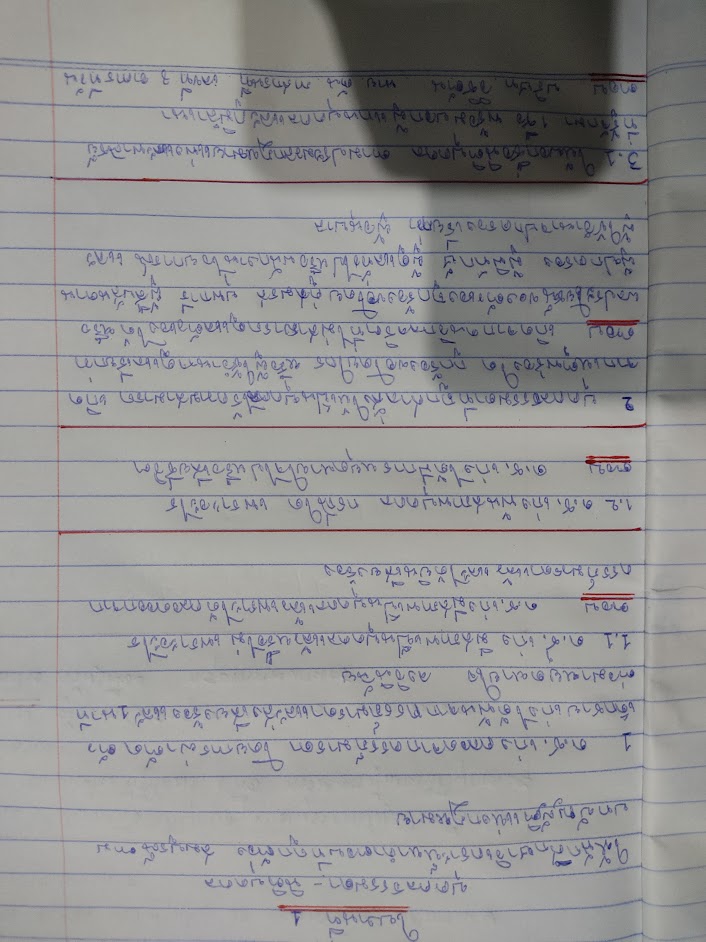 ใบงานที่ 1
บุคคลธรรมดา - นิติบุคคล
ให้นักศึกษาวิเคราะห์หาคำตอบที่ถูกต้อง สมบูรณ์ตาม
บทบัญญัติแห่งกฎหมาย
1 ด.ช. เก่งคลอดจากครรภ์มารดา โดยการผ่าตัด ตัว
เด็กชายเก่งได้พ้นจากครรภ์มารดาและส่งเสียงร้องและ 1 นาที
ต่อมาหยุดหายใจ จงวินิฉัย
1.1 ด.ช. เก่ง มีสภาพเป็นบุคคลแล้วหรือไม่ เพราะอะไร
ตอบ ด.ช. เก่งมีสภาพเป็นบุคคลแล้วเพราะได้คลอดออกจาก
ครรภ์มารดาแล้ว และได้ยินเสียงร้อง
1.2 ด.ช. เก่งพ้นสภาพบุคคล กรณีใด เพราะอะไร
ตอบ ด.ช. เก่งได้มีการหยุดหายใจไปหรือเสียชีวิต
2 บุคคลธรรมดาที่ถูกศาลสั่งให้เป็นบุคคลไร้ความสามารถ เกิด
จากเหตุพร่องใด ถูกร้องขอโดยใคร หรือผู้ใช้อำนาจดูแลเรียกว่า
ตอบ เกิดจากคนวิกลจริตที่ไม่สามารถดูแลตัวเองได้ หรือ
ผลประโยชน์ของตัวเองถูกร้องขอโดย คู่สมรส บุพการี ผู้สืบสันดาน
ผู้ปกครอง ผู้พิทักษ์ ผู้ดูแลทั่วไปหรือพนักงานอัยการณ์ และ
ผู้ใช้อำนาจปกครองเรียกว่า ผู้อนุบาล
3.1 ให้บอกชื่อนิติบุคคล ตามประมวลกฎหมายแพ่งและพาณิชย์
ที่รู้จักมา 1 ชื่อ พร้อมบอกผู้แทนบุคคลและภูมิลำเนา
ตอบ บริษัท อิชิตัน นาย ตัน ภาสกรนที เลขที่ 8 อาคารทีวัน